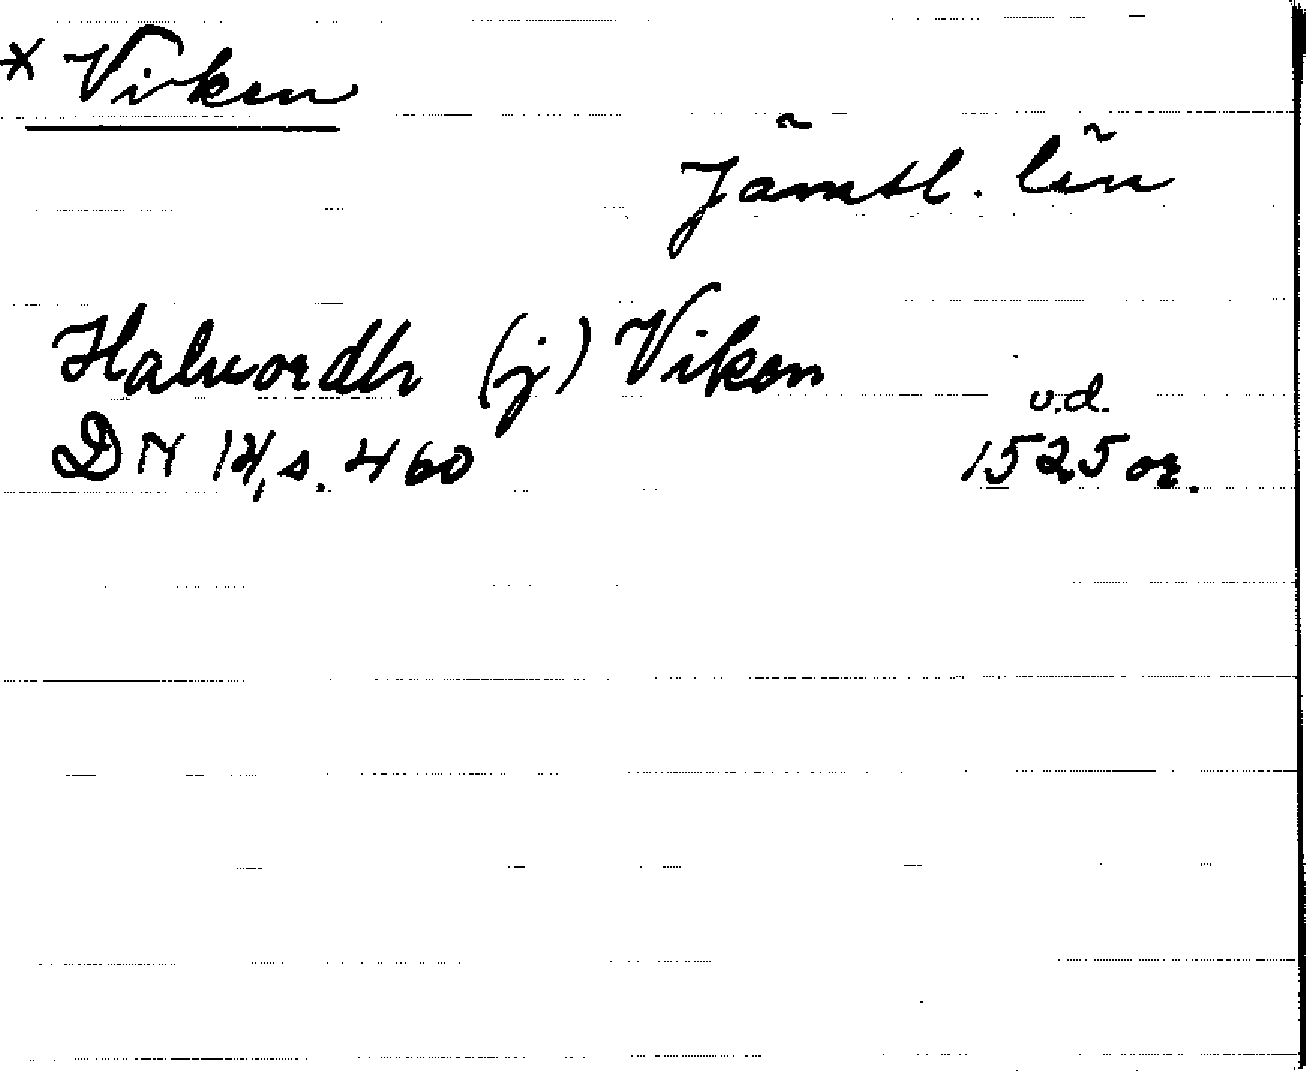 * Viken
Jämtl. län
Halvordh (j) Viken
u.d.
DN 14, s. 460 1525 or.